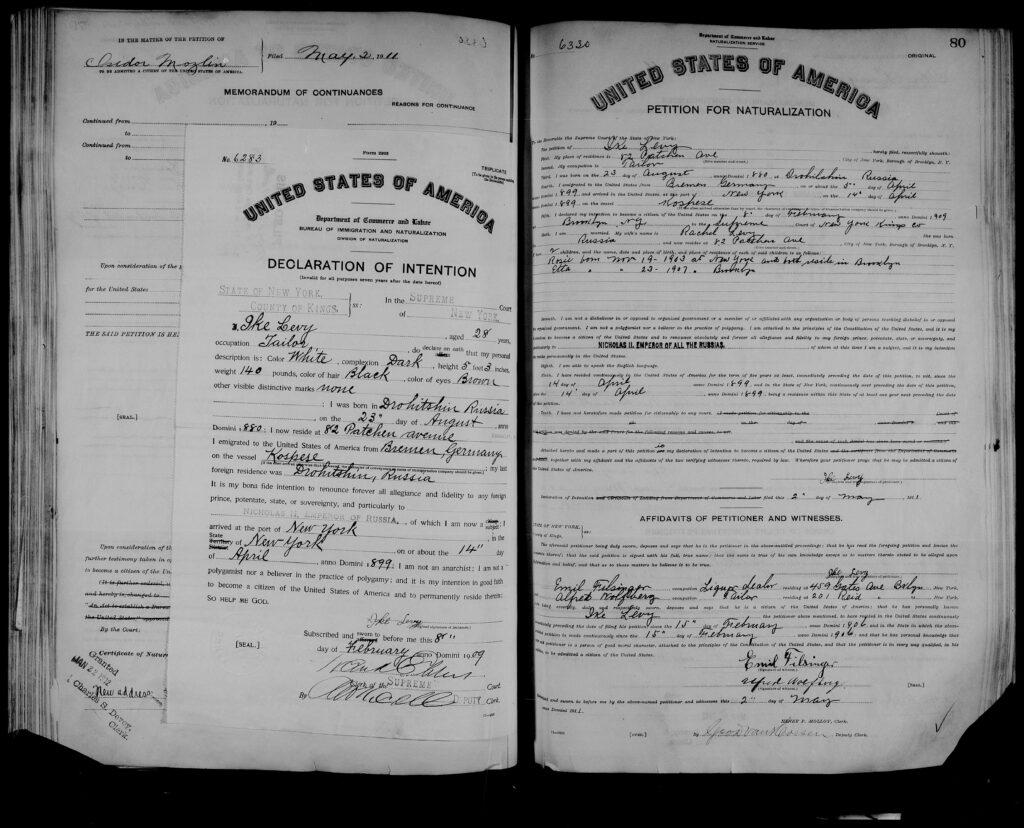 IN THE MATTER OF THE PETITION OF
Isidor Mozlin
TO BE ADMITTED A CITIZEN OF THE UNITED STATES OF AMERICA.
Filed May 2, 1911
MEMORANDUM OF CONTINUANCES
REASONS FOR CONTINUANCE
Continued from , 19
to
Continued from
to
Upon consideration of the
for the United States
THE SAID PETITION IS HE
[SEAL.]
Upon consideration of t
further testimony taken in o
to become a citizen of the Un
It is further ordered,
and hereby is changed to
By the Court.
Certificate of Natur
Granted
1912
New address
Charles S. Devoy,
Clerk.
No. 6283
Form 2203
TRIPLICATE
UNITED STATES OF AMERICA
Department of Commerce and Labor
BUREAU OF IMMIGRATION AND NATURALIZATION
DIVISION OF NATURALIZATION
DECLARATION OF INTENTION
(Invalid for all purposes seven years after the date hereof)
STATE OF NEW YORK,
COUNTY OF KINGS.
ss:
In the SUPREME Court
of NEW YORK.
I, Ike Levy, aged 28 years,
occupation Tailor, do declare on oath that my personal
description is: Color White, complexion Dark, height 5 feet 3 inches,
weight 140 pounds, color of hair Black, color of eyes Brown
other visible distinctive marks none
; I was born in Drohitshin Russia
, on the 23" day of August, anno
Domini 1880; I now reside at 82 Patchen avenue
I emigrated to the United States of America from Bremen, Germany
on the vessel Kospese; my last
foreign residence was Drohitshin, Russia
It is my bona fide intention to renounce forever all allegiance and fidelity to any foreign
prince, potentate, state, or sovereignty, and particularly to
NICHOLAS II. EMPEROR OF RUSSIA, of which I am now a subject; I
arrived at the port of New York, in the
State of New York on or about the 14" day
of April, anno Domini 1899; I am not an anarchist; I am not a
polygamist nor a believer in the practice of polygamy; and it is my intention in good faith
to become a citizen of the United States of America and to permanently reside therein:
SO HELP ME GOD.
Ike Levy
Subscribed and sworn to before me this 8"
day of February, anno Domini 1909
[SEAL.]
Clerk of the SUPREME Court.
By DEPUTY Clerk.
No. 6330
Department of Commerce and Labor
NATURALIZATION SERVICE
ORIGINAL
80
UNITED STATES OF AMERICA
PETITION FOR NATURALIZATION
To the Honorable the Supreme Court of the State of New York:
The petition of Ike Levy, hereby filed, respectfully showeth:
First. My place of residence is 82 Patchen Ave, City of New York, Borough of Brooklyn, N. Y.
Second. My occupation is Tailor
Third. I was born on the 23 day of August, anno Domini 1880, at Drohitshin Russia
Fourth. I emigrated to the United States from Bremen Germany, on or about the 5" day of April
1899, and arrived in the United States, at the port of New York, on the 14" day of April
1899, on the vessel Kospese
Fifth. I declared my intention to become a citizen of the United States on the 8" day of February, anno Domini 1909
Brooklyn, NY, in the Supreme Court of New York Kings Co
Sixth. I am married. My wife's name is Rachel Levy She was born
Russia and now resides at 82 Patchen Ave, City of New York, Borough of Brooklyn, N. Y.
I have 2 children, and the name, date and place of birth, and place of residence of each of said children is as follows:
Rosie born Nov 19-1903 at New York and both reside in Brooklyn
Etta " " 23-1907 " Brooklyn
Seventh. I am not a disbeliever in or opposed to organized government or a member of or affiliated with any organization or body of persons teaching disbelief in or opposed
to organized government. I am not a polygamist nor a believer in the practice of polygamy. I am attached to the principles of the Constitution of the United States, and it is my
intention to become a citizen of the United States and to renounce absolutely and forever all allegiance and fidelity to any foreign prince, potentate, state, or sovereignty, and
particularly to NICHOLAS II. EMPEROR OF ALL THE RUSSIAS, of whom at this time I am a subject, and it is my intention
to reside permanently in the United States.
Eighth. I am able to speak the English language.
Ninth. I have resided continuously in the United States of America for the term of five years at least, immediately preceding the date of this petition, to wit, since the
14 day of April, anno Domini 1899, and in the State of New York, continuously next preceding the date of this petition,
since the 14" day of April, anno Domini 1899, being a residence within this State of at least one year next preceding the date
of this petition.
Tenth. I have not heretofore made petition for citizenship to any court.
Attached hereto and made a part of this petition are my declaration of intention to become a citizen of the United States
, together with my affidavit and the affidavits of the two verifying witnesses thereto, required by law. Wherefore your petitioner prays that he may be admitted a citizen of
the United States of America.
Ike Levy
Declaration of Intention filed this 2" day of May, 1911
AFFIDAVITS OF PETITIONER AND WITNESSES.
STATE OF NEW YORK,
County of Kings,
ss:
The aforesaid petitioner being duly sworn, deposes and says that he is the petitioner in the above-entitled proceedings; that he has read the foregoing petition and knows the
contents thereof; that the said petition is signed with his full, true name; that the same is true of his own knowledge except as to matters therein stated to be alleged upon
information and belief, and that as to those matters he believes it to be true.
Ike Levy
Emil Filsinger, occupation Liquor dealer, residing at 459 Gates Ave Bklyn, New York,
Alfred Wolfberg, occupation Tailor, residing at 201 Reid " ", New York,
Ike Levy
15" day of February, anno Domini 1906
15" day of February, anno Domini 1906
Emil Filsinger
Alfred Wolfberg
[SEAL.]
2" day of May
anno Domini 1911.
HENRY P. MOLLOY, Clerk.
[SEAL.]
By , Deputy Clerk.